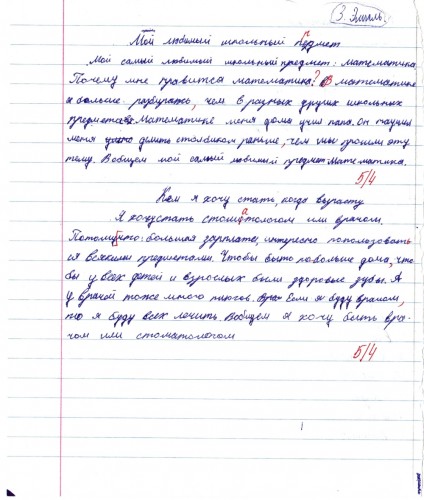 З. Эмиль.
Мой любимый школьный предмет
Мой самый любимый школьный предмет: математика.
Почему мне нравится математика? В математике
я больше разбираюсь, чем в разных других школьных
предметах. Математике меня дома учил папа. Он научил
меня делить столбиком раньше, чем мы прошли эту
тему. Вобщем мой самый любимый предмет математика.
5/4
Кем я хочу стать, когда вырасту
Я хочу стать стоматологом или врачом.
Потому что: большая зарплата, интересно попользовать
ся всякими предметами. Чтобы было побольше дома, что
бы у всех детей и взрослых были здоровые зубы. А
у врачей тоже много плюсов. Если я буду врачом,
то я буду всех лечить. Вобщем я хочу быть вра-
чом или стоматологом
5/4